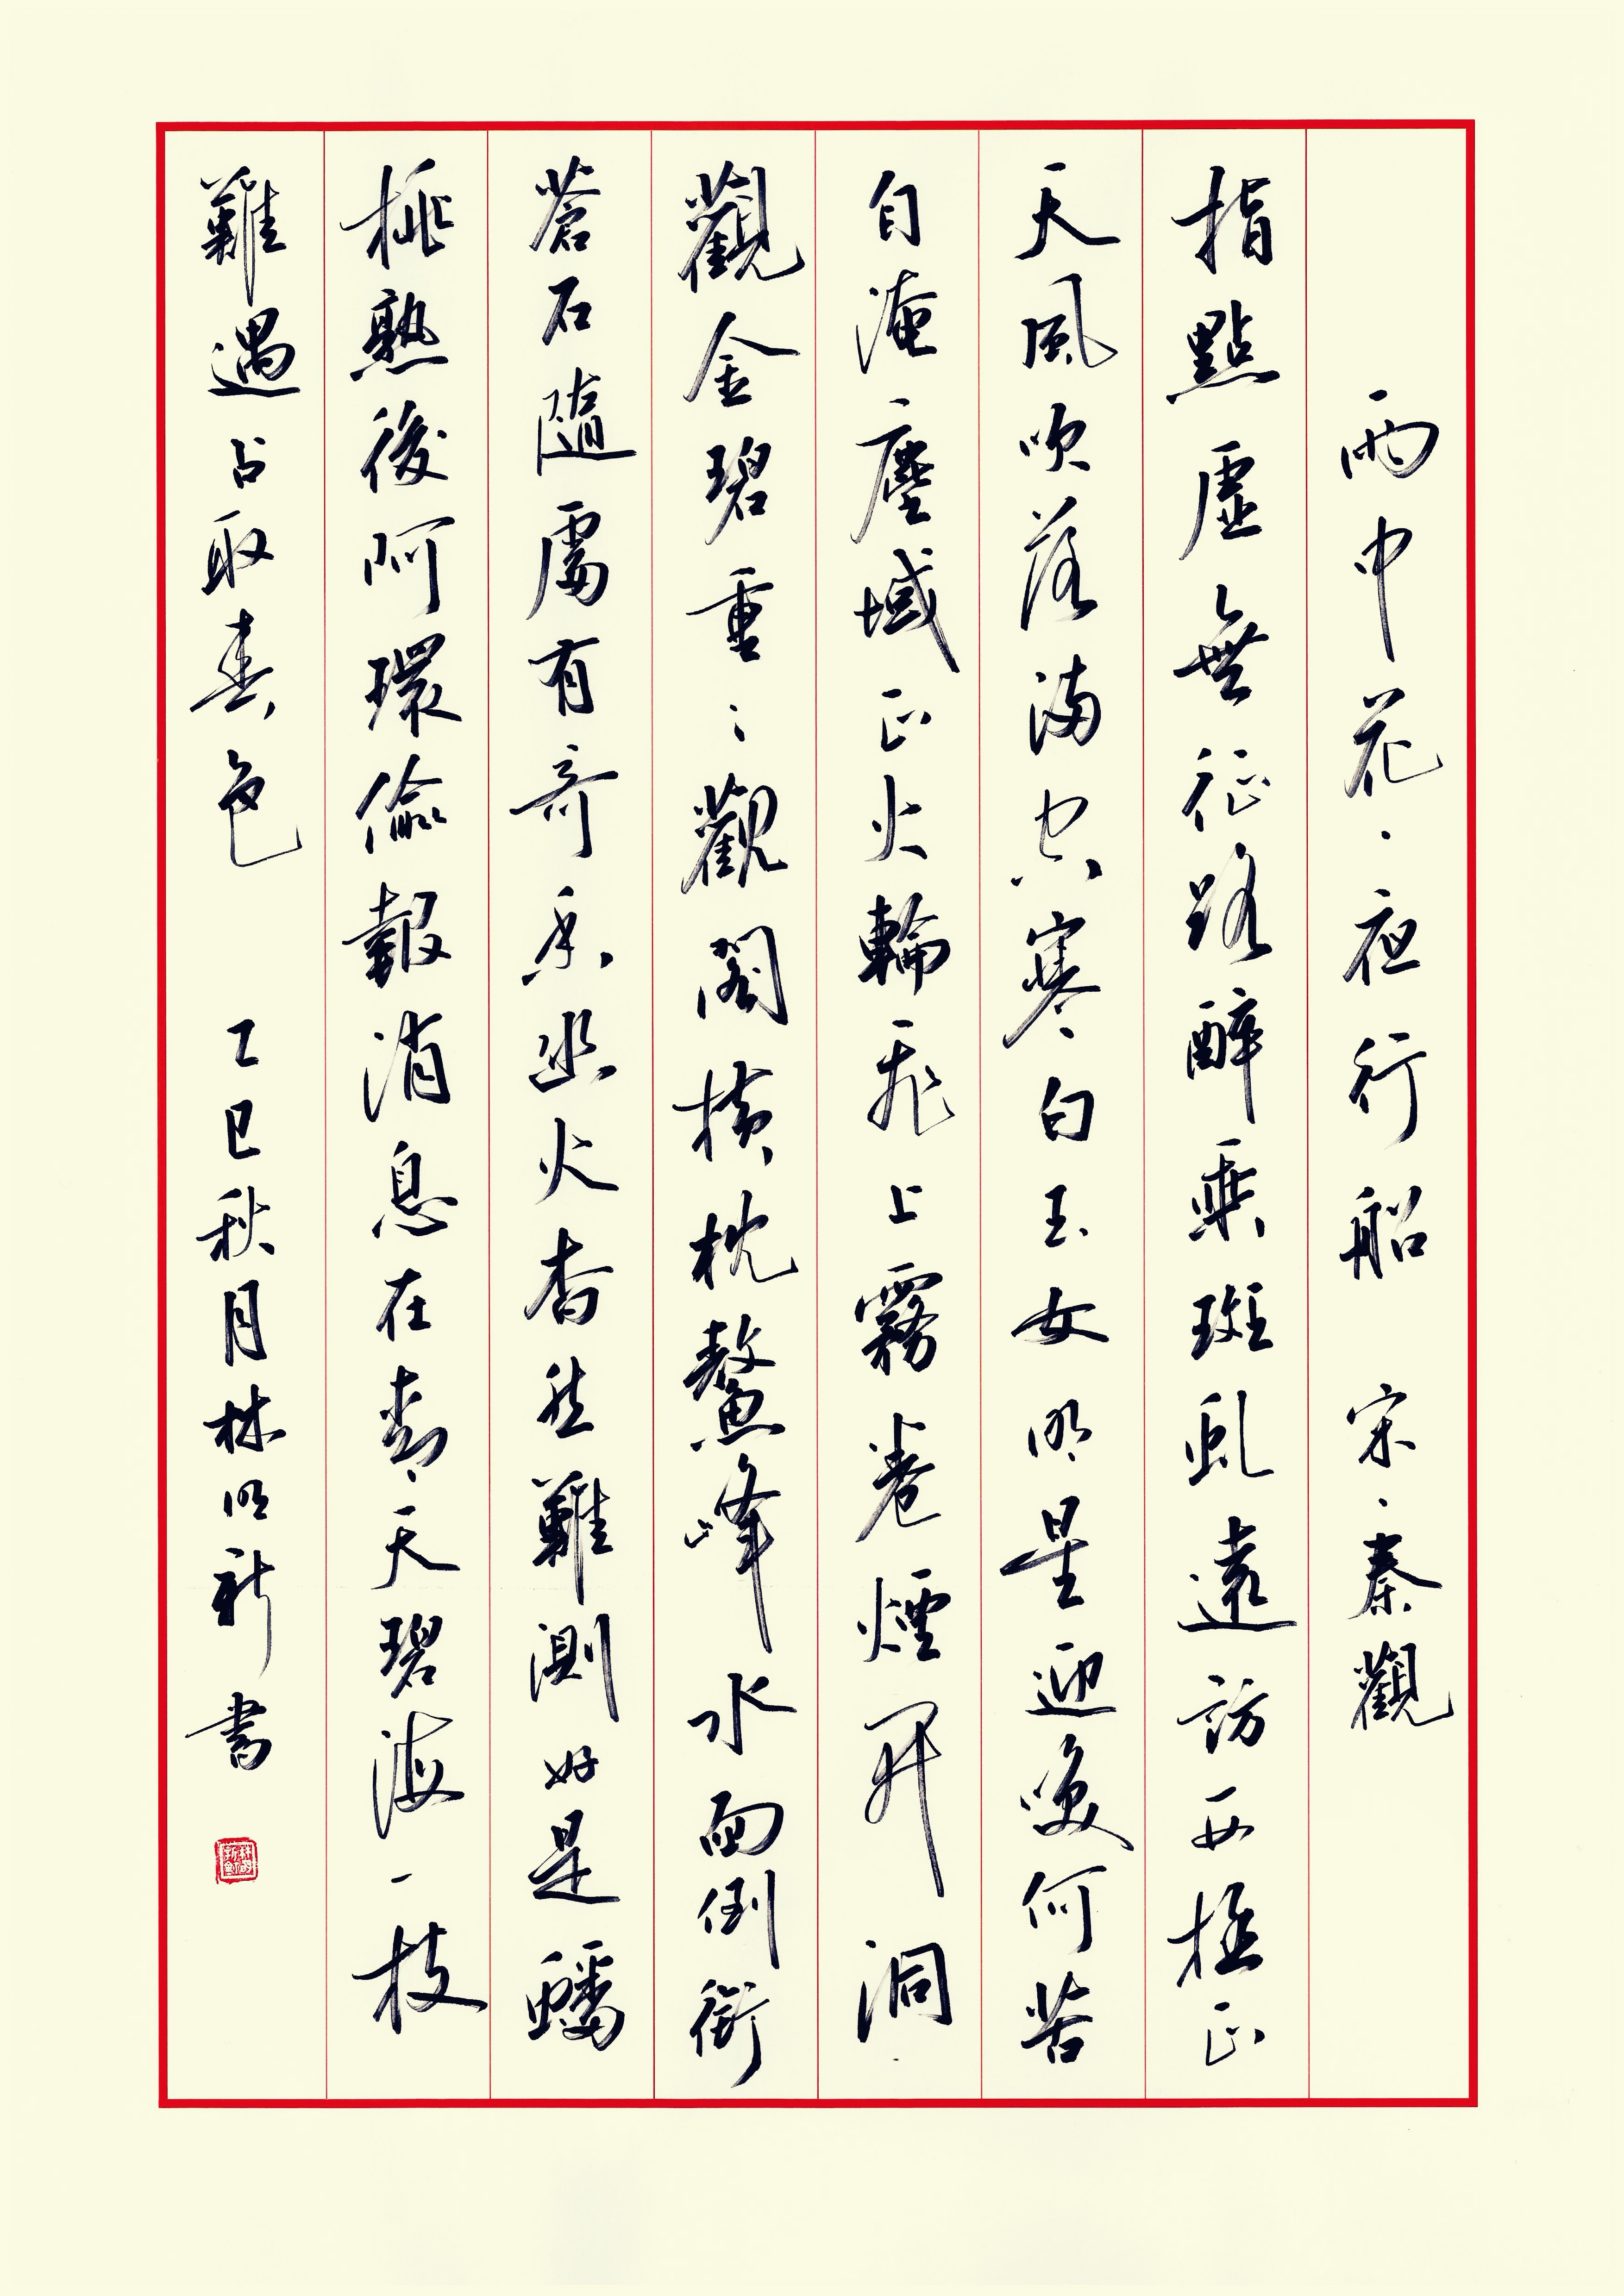 雨中花·夜行船 宋·秦觀
指點虛無征路醉乘斑虬遠訪西極正
天風吹落滿空寒白玉女明星迎喚何苦
自淹塵域正火輪飛上霧卷煙開洞
觀金碧重〻觀閣橫枕鰲峰水面倒銜
蒼石隨處有奇香幽火杳然難測好是蟠
桃熟後阿環偷報消息在青天碧海一枝
難遇占取春色 乙巳秋月林明新書